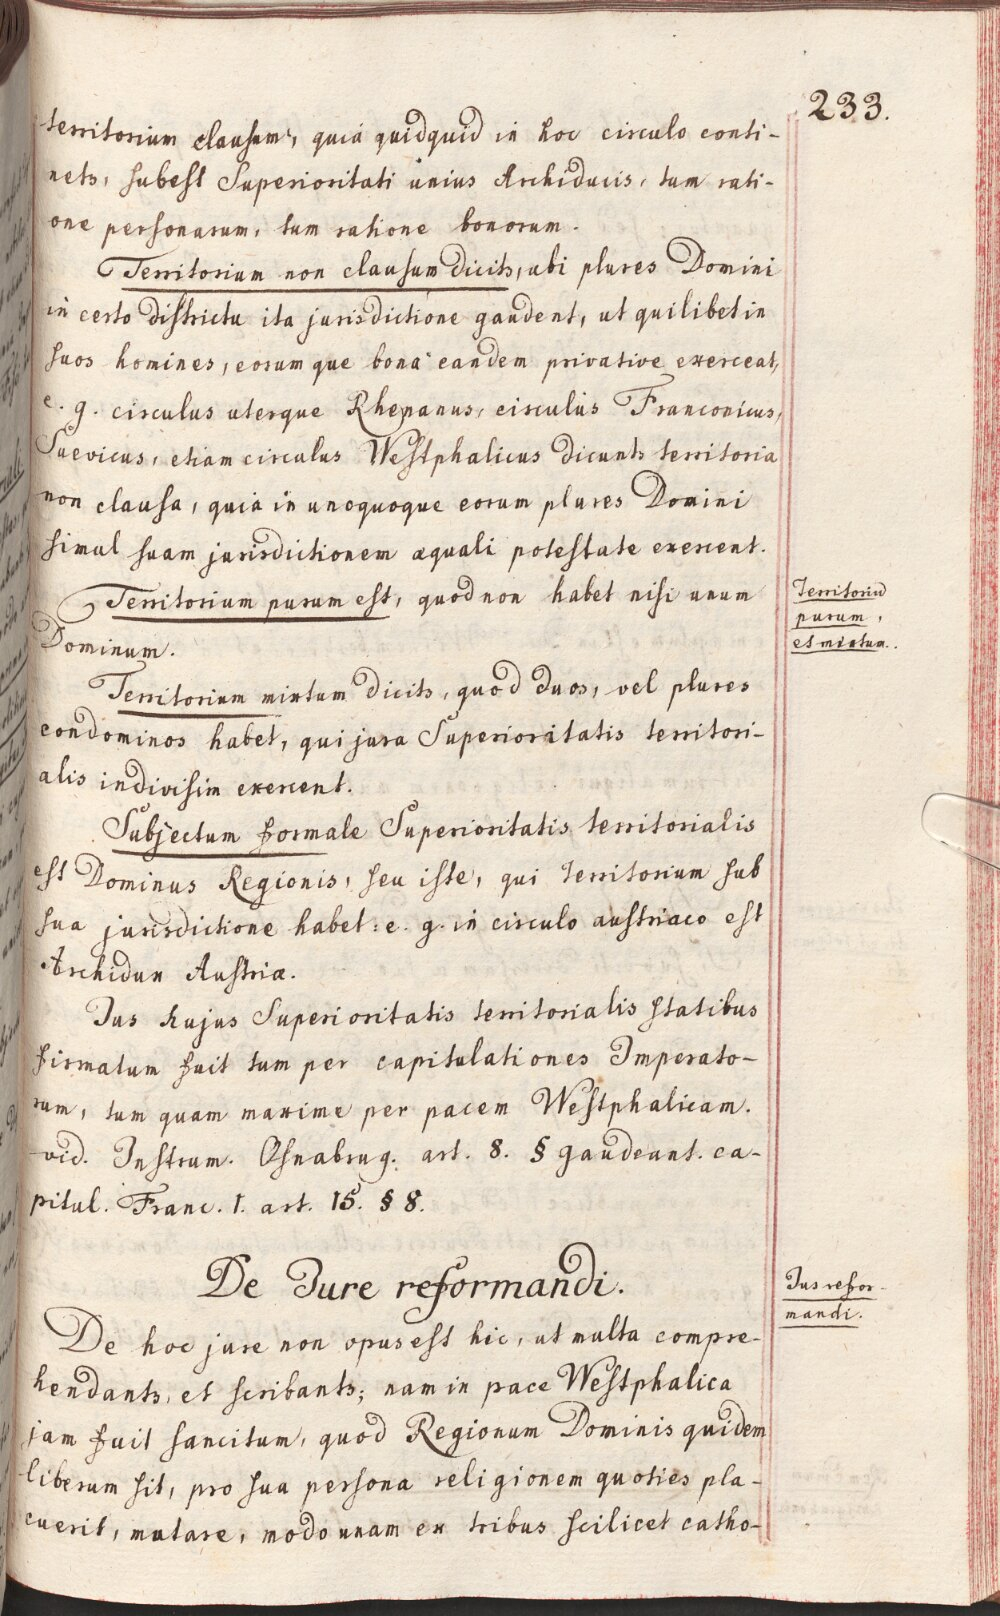 233.
territorium clausum, quia quidquid in hoc circulo conti-
nets, subest Superioritati unius Archiducis, tum rati-
one personarum, tum ratione bonorum.
Territorium non clausum dicits, ubi plures Domini
in certo districtu ita jurisdictione gaudent, ut quilibet in
suos homines, eorumque bona eandem privative exerceat,
e. g. circulus uterque Rhenanus, circulus Franconicus,
Suevicus, etiam circulus Westphalicus dicunts territoria
non clausa, quia in unoquoque eorum plures Domini
simul suam jurisdictionem æquali potestate exercent.
Territorium purum est, quod non habet nisi unum
Dominum.
Territoriũ
purum,
et mixtum.
Territorium mixtum dicits, quod duos, vel plures
condominos habet, qui jura Superioritatis territori-
alis indivisim exercent.
Subjectum formale Superioritatis territorialis
est Dominus Regionis, seu iste, qui territorium sub
sua jurisdictione habet: e. g. in circulo austriaco est
Archidux Austriæ.
Jus hujus Superioritatis territorialis statibus
firmatum fuit tum per capitulationes Imperato-
rum, tum quam maxime per pacem Westphalicam.
vid. Instrum. Osnabrug. art. 8. § gaudeant. ca-
pitul. Franc. 1. art. 15. § 8.
De Jure reformandi.
Jus refor-
mandi.
De hoc jure non opus est hic, ut multa compre-
hendants, et scribants; nam in pace Westphalica
jam fuit sancitum, quod Regionum Dominis quidem
liberum sit, pro sua persona religionem quoties pla-
cuerit, mutare, modo unam ex tribus scilicet catho-